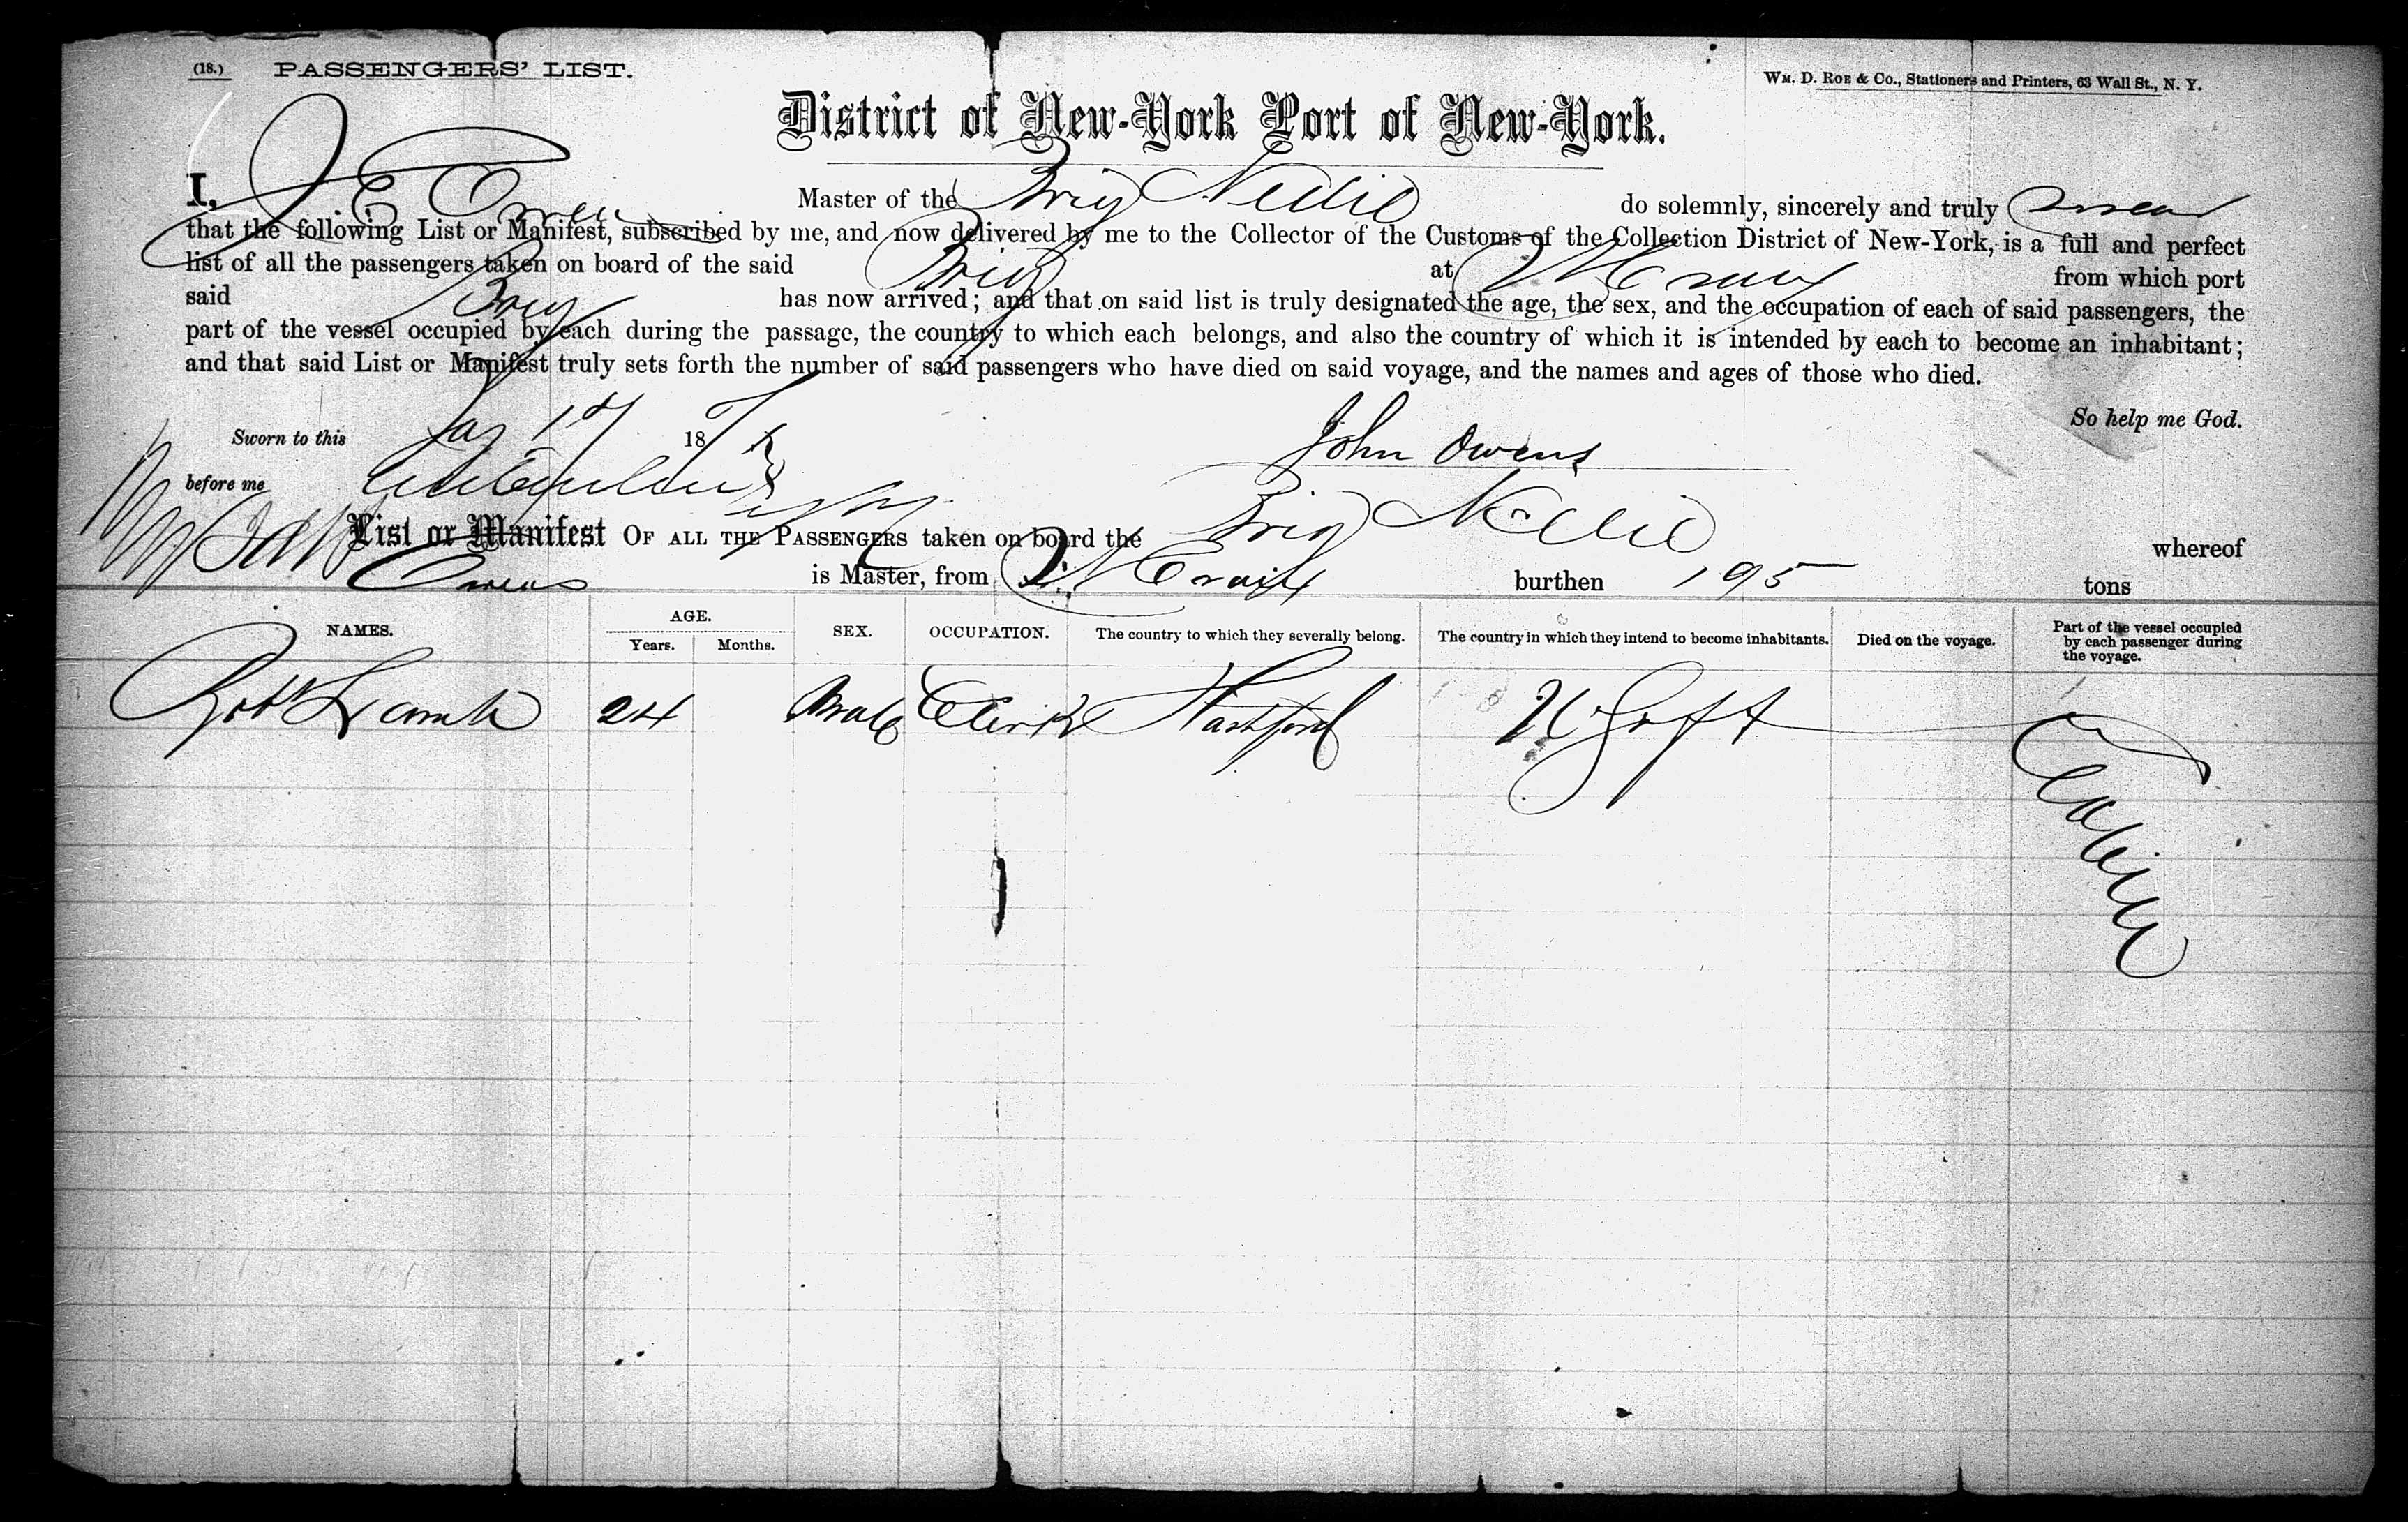 (18.) PASSENGERS' LIST.
Wm. D. Roe & Co., Stationers and Printers, 63 Wall St., N. Y.
District of New-York Port of New-York.
I, J. E. Owen Master of the Brig Nellie do solemnly, sincerely and truly swear
that the following List or Manifest, subscribed by me, and now delivered by me to the Collector of the Customs of the Collection District of New-York, is a full and perfect
list of all the passengers taken on board of the said Brig at from which port
said Brig has now arrived; and that on said list is truly designated the age, the sex, and the occupation of each of said passengers, the
part of the vessel occupied by each during the passage, the country to which each belongs, and also the country of which it is intended by each to become an inhabitant;
and that said List or Manifest truly sets forth the number of said passengers who have died on said voyage, and the names and ages of those who died.
So help me God.
Sworn to this 18
John Owens
before me
List or Manifest OF ALL THE PASSENGERS taken on board the Brig Nellie whereof
Owens is Master, from burthen 195 tons
NAMES. AGE. Years. Months. SEX. OCCUPATION. The country to which they severally belong. The country in which they intend to become inhabitants. Died on the voyage. Part of the vessel occupied by each passenger during the voyage.
Robt Lamb 24 Male Clerk Hartford Cabin